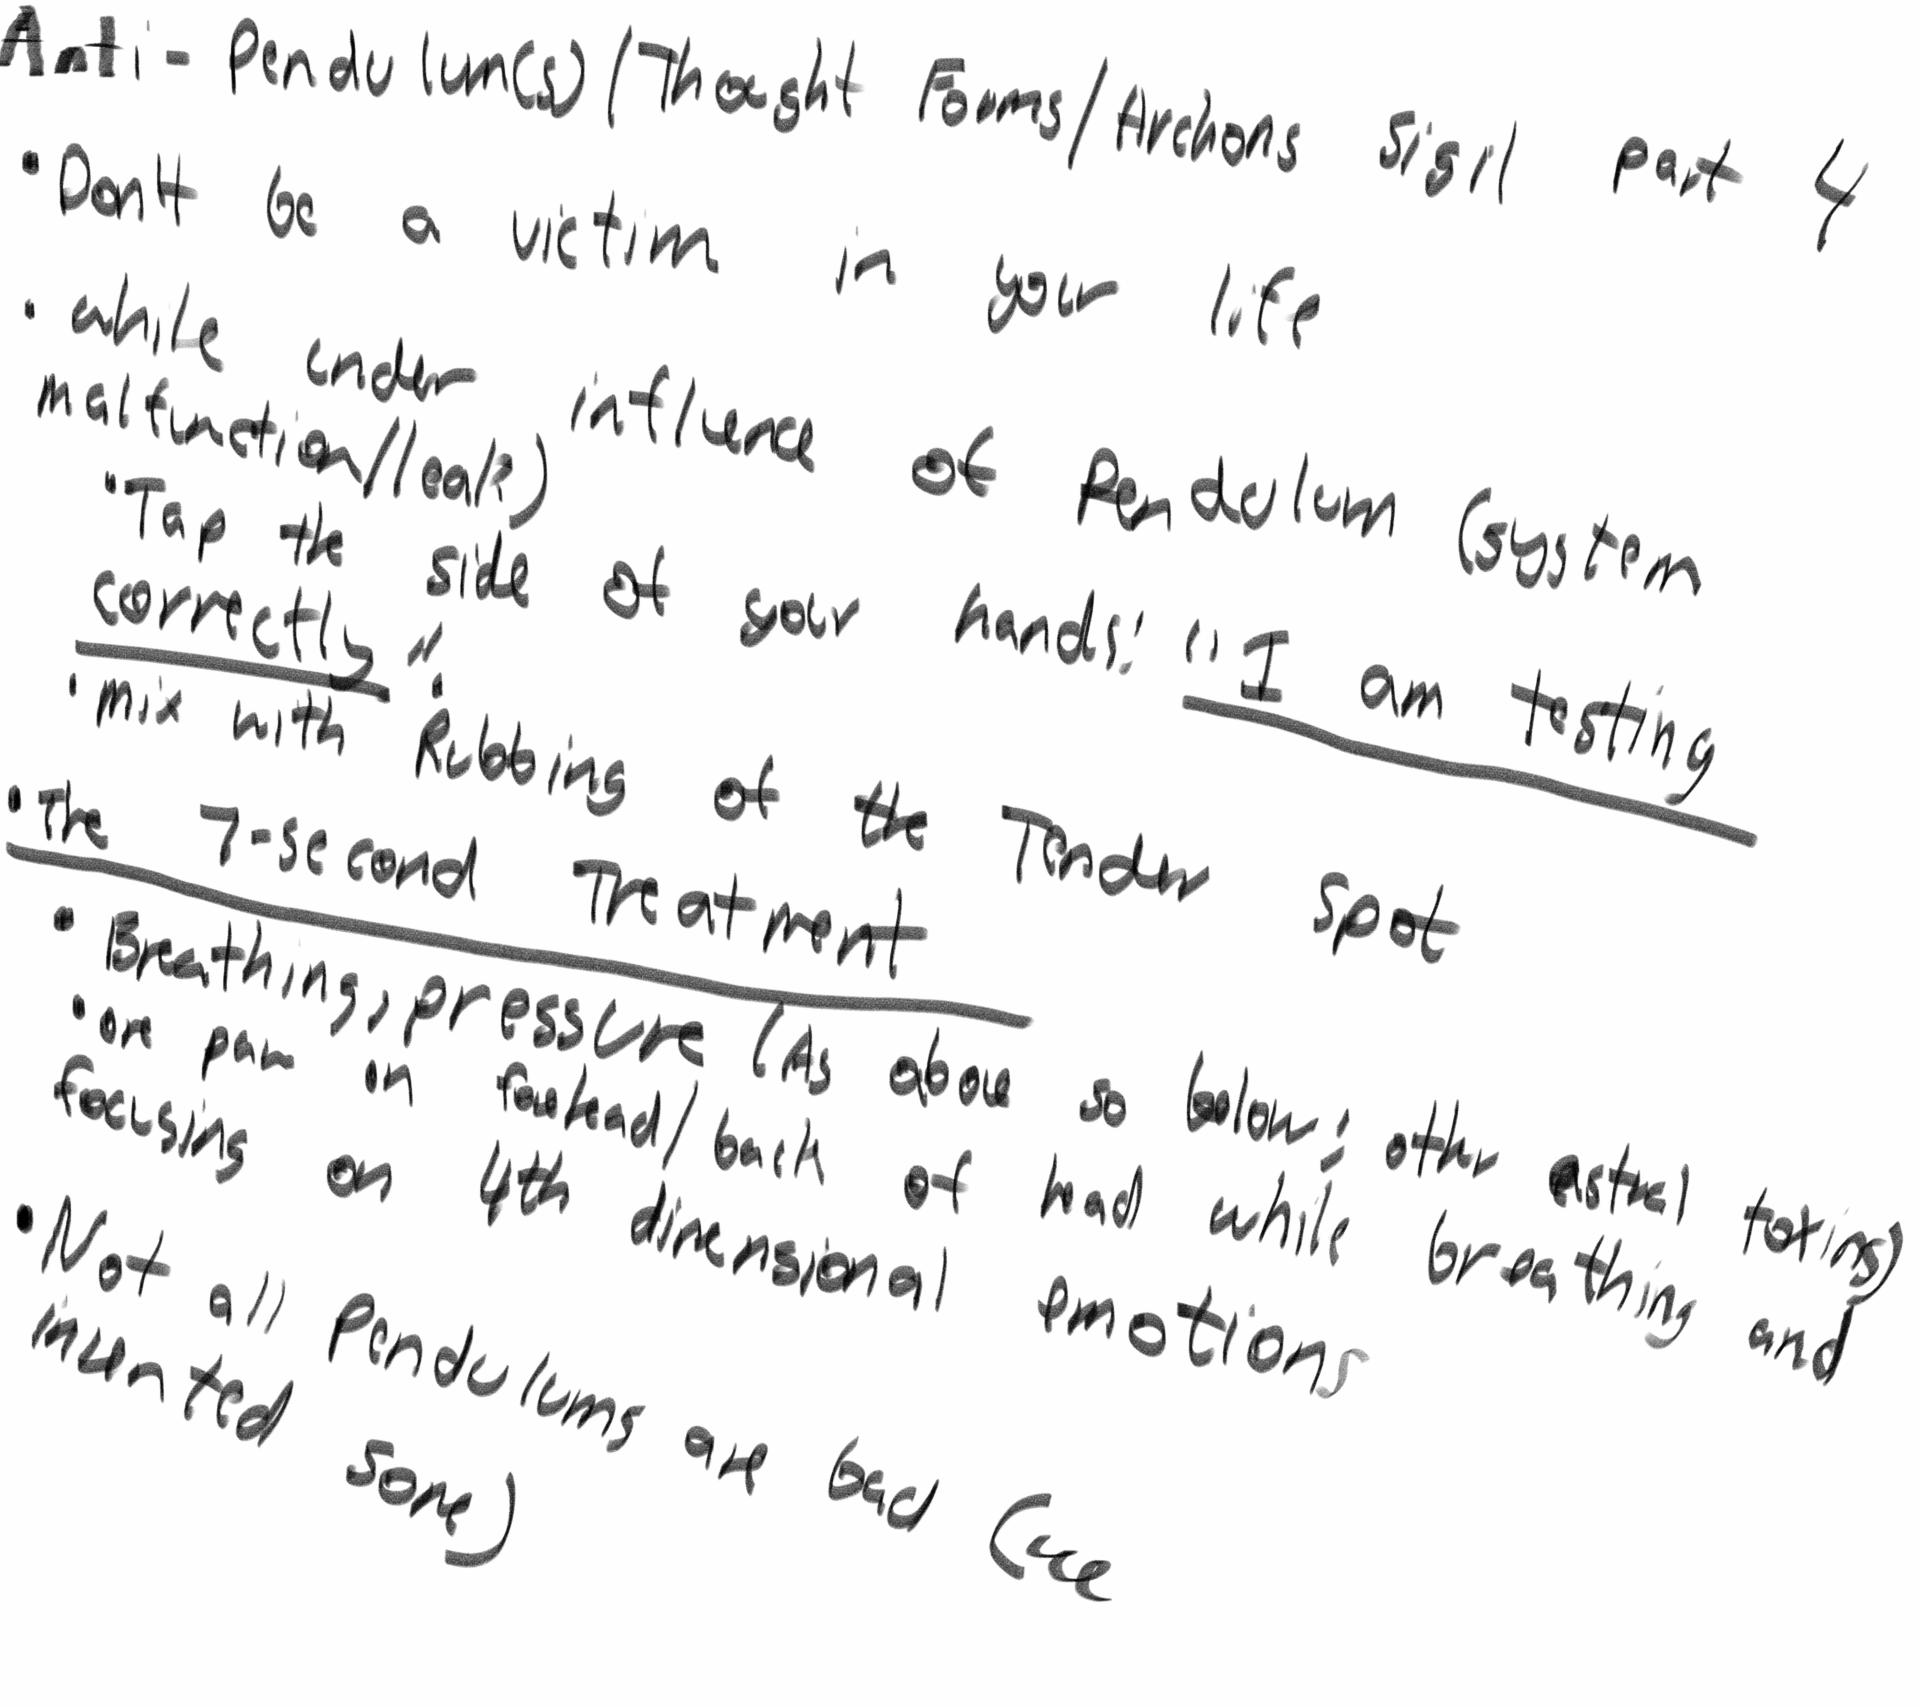 Anti-Pendulum(s)/Thought Forms/Archons Sigil part 4
• Don't be a victim in your life
• while under influence of Pendulum (system
malfunction//leak)
• Tap the side of your hands: "I am testing
correctly"
• mix with Rubbing of the Tender spot
• The 7-second Treatment
• Breathing, pressure (As above so below; other astral toxins)
• one palm on forehead/back of head while breathing and
focusing on 4th dimensional emotions
• Not all Pendulums are bad (we
invented some)